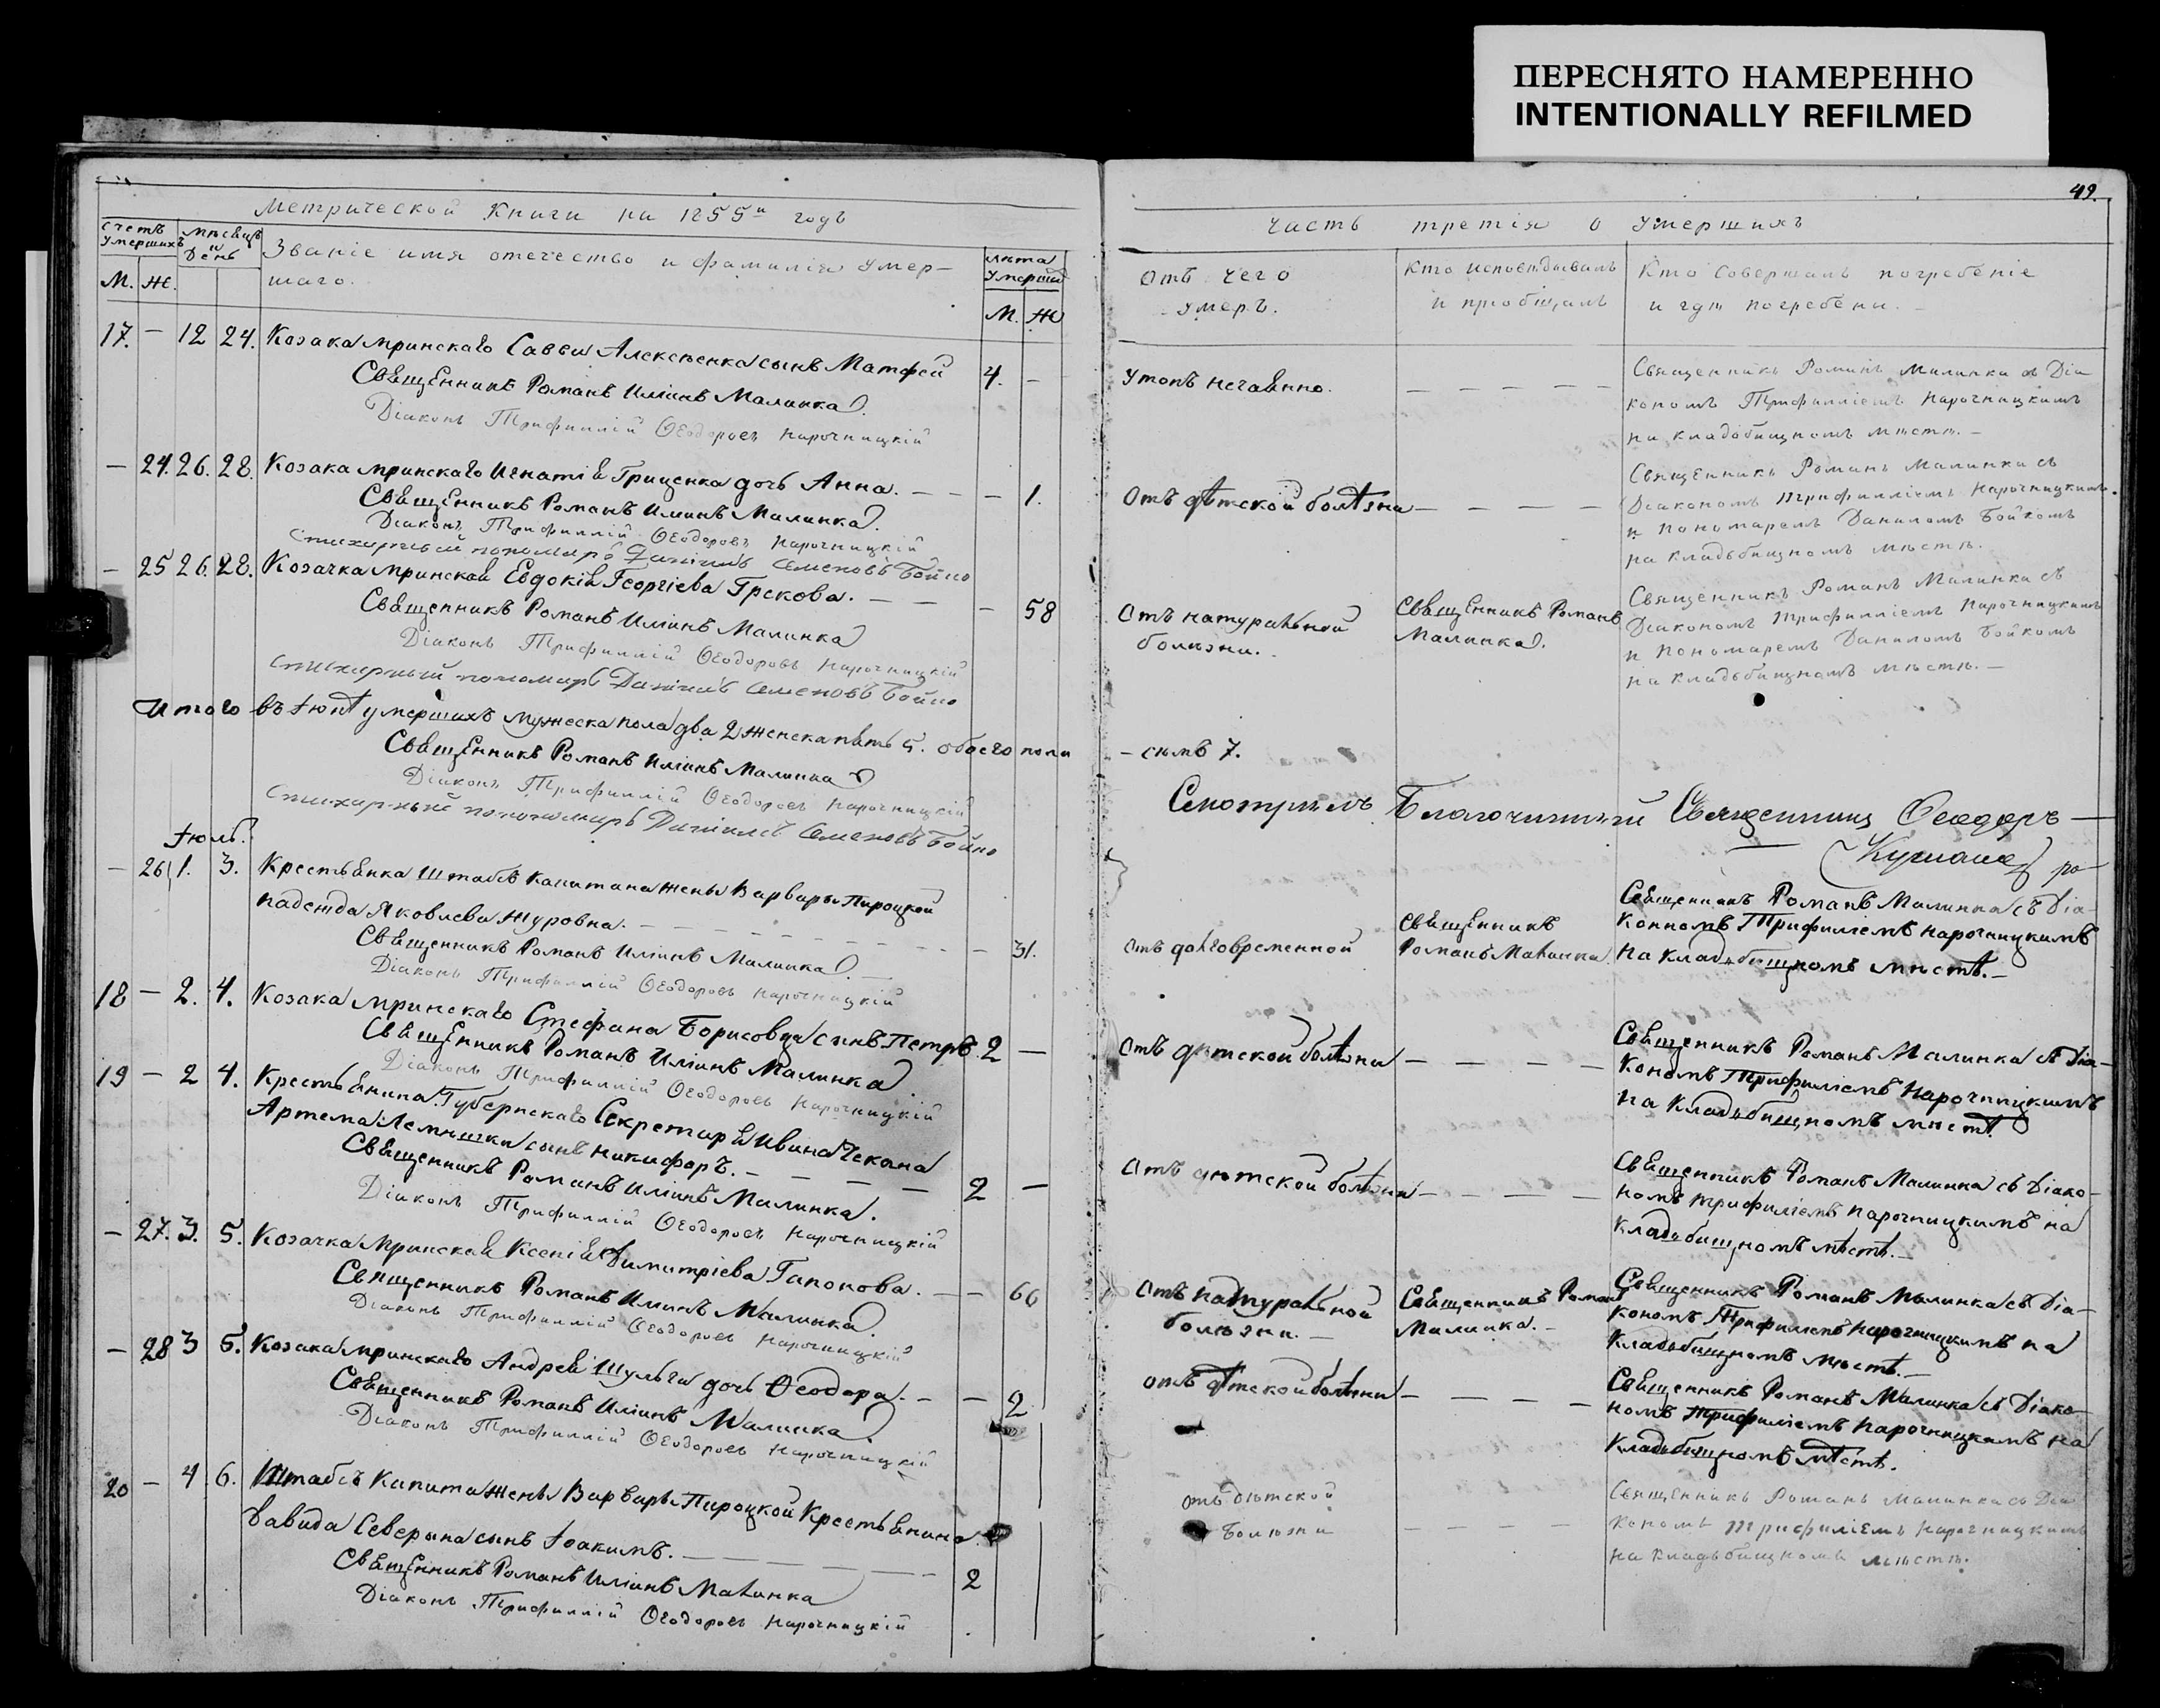 ПЕРЕСНЯТО НАМЕРЕННО
INTENTIONALLY REFILMED
Метрической Книги на 1855й годъ
Счетъ умершихъ
Мѣсяцъ и День
Званіе имя отечество и фамилія умер-
шаго.
Лѣта умершихъ
М. Ж.
М. Ж
17. — 12 24. Козака Мринскаго Саввы Алексѣенка сынъ Матфей 4. —
Священникъ Романъ Иліинъ Малинка
Діаконъ Трифиллій Ѳеодоровъ Нарочницкій
— 24. 26. 28. Козака Мринскаго Игнатія Гриценка дочь Анна. — — — 1.
Священникъ Романъ Иліинъ Малинка.
Діаконъ Трифиллій Ѳеодоровъ Нарочницкій
Стихарный пономарь Даніилъ Семеновъ Бойко
— 25 26. 28. Козачка Мринская Евдокія Георгіева Грекова. — — — 58
Священникъ Романъ Иліинъ Малинка
Діаконъ Трифиллій Ѳеодоровъ Нарочницкій
Стихарный пономарь Даніилъ Семеновъ Бойко
Итого въ Іюнѣ умершихъ мужеска пола два 2 женска пять 5. обоего пола
Священникъ Романъ Иліинъ Малинка
Діаконъ Трифиллій Ѳеодоровъ Нарочницкій
Стихарный пономарь Даніилъ Семеновъ Бойко
Іюль.
— 26 1. 3. Крестьянка Штабсъ Капитана жены Варвары Пироцкой
Надежда Яковлева Журовна. — — — 31.
Священникъ Романъ Иліинъ Малинка. —
Діаконъ Трифиллій Ѳеодоровъ Нарочницкій
18 — 2. 4. Козака Мринскаго Стефана Борисовца сынъ Петръ. 2 —
Священникъ Романъ Иліинъ Малинка
Діаконъ Трифиллій Ѳеодоровъ Нарочницкій
19 — 2 4. Крестьянина Губернскаго Секретаря Ивана Чекана
Артема Лемишки сынъ Никифоръ. — — — — 2 —
Священникъ Романъ Иліинъ Малинка.
Діаконъ Трифиллій Ѳеодоровъ Нарочницкій
— 27. 3. 5. Козачка Мринская Ксенія Димитріева Гапонова. — — 66
Священникъ Романъ Иліинъ Малинка.
Діаконъ Трифиллій Ѳеодоровъ Нарочницкій
— 28 3 5. Козака Мринскаго Андрея Шульги дочь Ѳеодора. — — 2
Священникъ Романъ Иліинъ Малинка
Діаконъ Трифиллій Ѳеодоровъ Нарочницкій
20 — 4 6. Штабсъ Капита жены Варвары Пироцкой Крестьянина
Давида Северина сынъ Іоакимъ. — — — 2
Священникъ Романъ Иліинъ Малинка
Діаконъ Трифиллій Ѳеодоровъ Нарочницкій
49.
Часть третія о умершихъ
Отъ чего
умеръ.
Кто исповѣдывалъ
и пріобщалъ
Кто совершалъ погребеніе
и гдѣ погребены. —
Утопъ нечаянно. — — — — —
Священникъ Романъ Малинка съ Діа
кономъ Трифилліемъ Нарочницкимъ
на кладбищномъ мѣстѣ. —
Отъ дѣтской болѣзни — — — —
Священникъ Романъ Малинка съ
Діакономъ Трифилліемъ Нарочницкимъ
и Пономаремъ Даниломъ Бойкомъ
на кладьбищномъ мѣстѣ.
Отъ натуральной
болѣзни.
Священникъ Романъ
Малинка.
Священникъ Романъ Малинка съ
Діакономъ Трифилліемъ Нарочницкимъ
и Пономаремъ Даниломъ Бойкомъ
на кладьбищномъ мѣстѣ. —
— семь 7.
Смотрѣлъ Благочинный Священникъ Ѳеодоръ —
Отъ долговременной
Священникъ
Романъ Малинка.
Священникъ Романъ Малинка съ Діа-
кономъ Трифиліемъ Нарочницкимъ
на кладьбищномъ мѣстѣ. —
Отъ дѣтской болѣзни — — — —
Священникъ Романъ Малинка съ Діа-
кономъ Трифиліемъ Нарочницкимъ
на кладьбищномъ мѣстѣ
Отъ дѣтской болѣзни — — — —
Священникъ Романъ Малинка съ Діако-
номъ Трифиліемъ Нарочницкимъ на
кладьбищномъ мѣстѣ. —
Отъ натуральной
болѣзни. —
Священникъ Романъ
Малинка. —
Священникъ Романъ Малинка съ Діа-
кономъ Трифиліемъ Нарочницкимъ на
кладьбищномъ мѣстѣ. —
отъ дѣтской болѣзни — — — —
Священникъ Романъ Малинка съ Діако-
номъ Трифиліемъ Нарочницкимъ на
кладьбищномъ мѣстѣ.
отъ дѣтской
болѣзни — — — —
Священникъ Романъ Малинка съ Діа
кономъ Трифиліемъ Нарочницкимъ
на кладьбищномъ мѣстѣ.